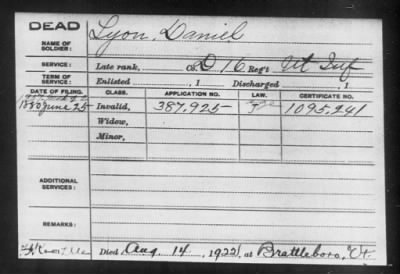 DEAD
NAME OF SOLDIER: Lyon, Daniel
SERVICE: Late rank, Co. D 16 Reg't Vt Inf
TERM OF SERVICE: Enlisted , 1 Discharged , 1
DATE OF FILING. CLASS. APPLICATION NO. LAW. CERTIFICATE NO.
1880 June 25 Invalid, 387,925 1095,241
Widow,
Minor,
ADDITIONAL SERVICES:
REMARKS:
Died Aug. 14, 1922, at Brattleboro, Vt.